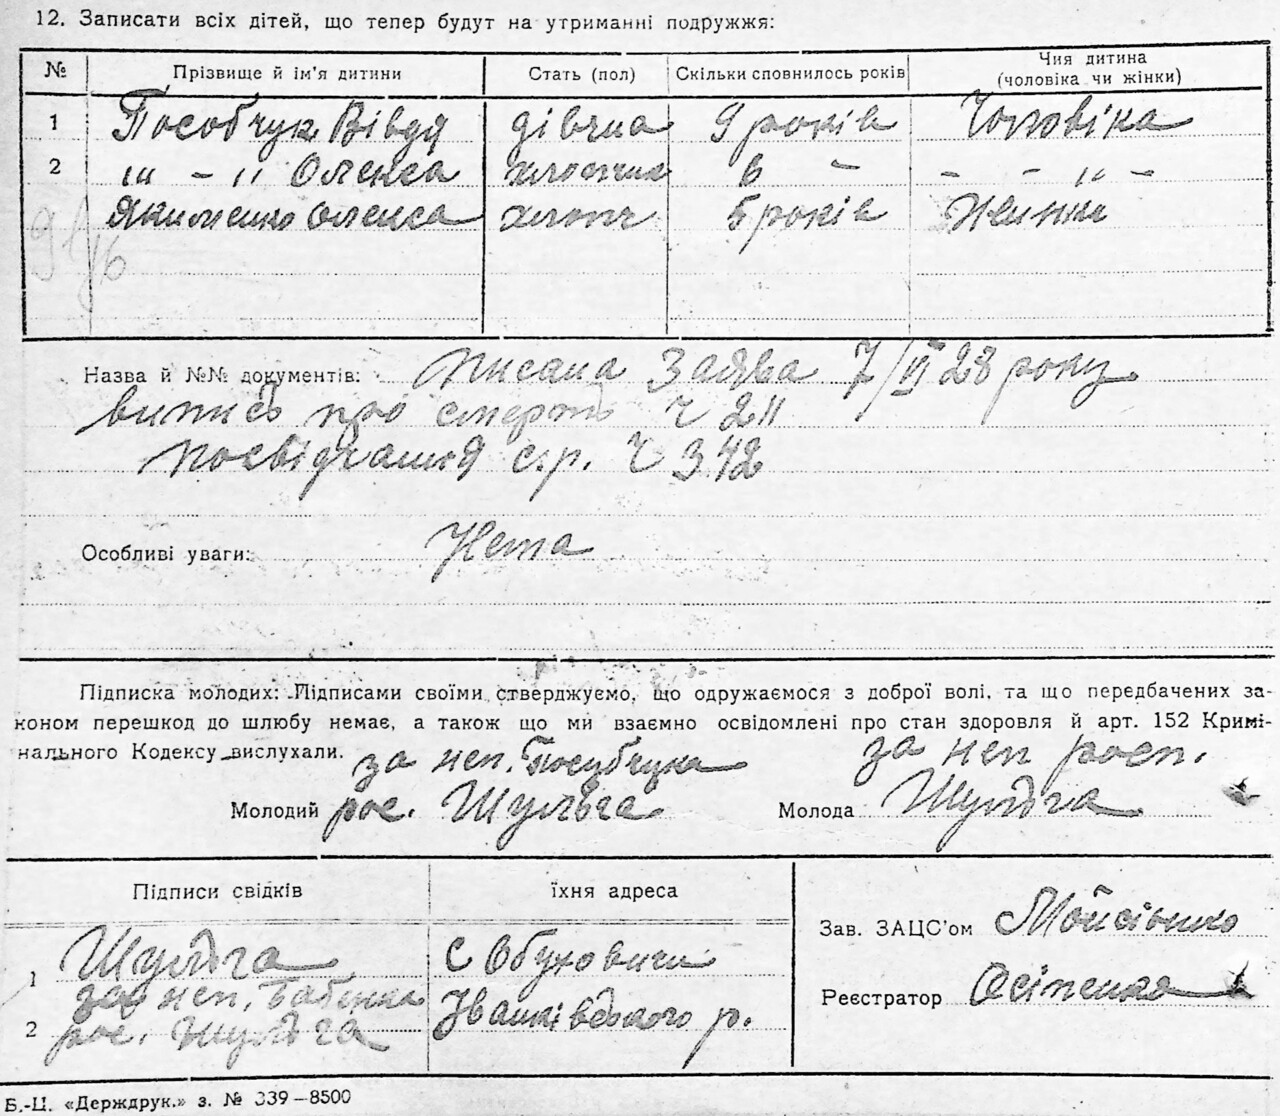 12. Записати всіх дітей, що тепер будут на утриманні подружжя:
№ Прізвище й ім'я дитини Стать (пол) Скільки сповнилось років Чия дитина (чоловіка чи жінки)
1 Пособчук Вівдя дівчина 9 років Чоловіка
2 ,,, – ,, Олекса хлопчик 6 – – – ,, –
Якименко Олекса хлопч 5 років Жінки
Назва й №№ документів: писана Заява 7/VI 28 року
випись про смерть ч 211
посвідчання с.р. ч 342
Особливі уваги: Нема
Підписка молодих: Підписами своїми стверджуємо, що одружаємося з доброї волі, та що передбачених за-
коном перешкод до шлюбу немає, а також що ми взаємно освідомлені про стан здоровля й арт. 152 Кримі-
нального Кодексу вислухали.
за неп. Пособчука за неп росп.
Молодий рос. Шульга Молода Шульга
Підписи свідків їхня адреса
Зав. ЗАЦС'ом Мойсієнко
1 Шульга с Обуховичи
Реєстратор Осіпенко
за неп. Бабенка Іванківського р.
2 рос. Шульга
Б.-Ц. «Держдрук.» з. № 339–8500